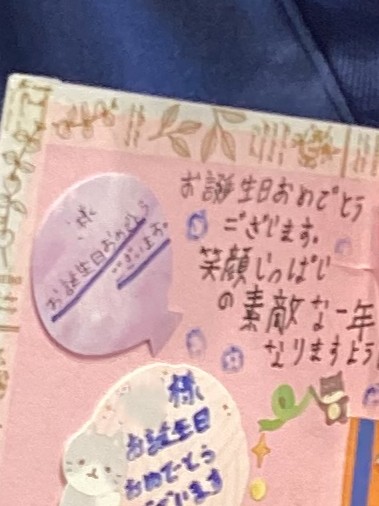 お誕生日おめでとう
ございます。
笑顔いっぱい
の素敵な一年
なりますよう
様
お誕生日おめでとう
ございます。
様
お誕生日
おめでとう
ございます